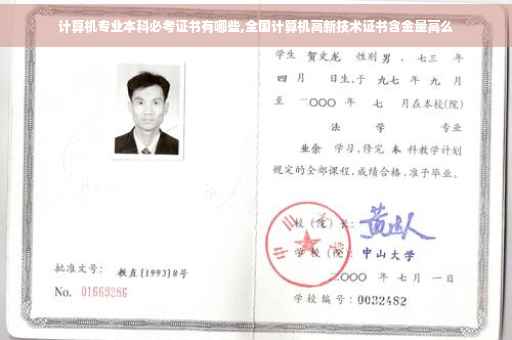 计算机专业本科必考证书有哪些,全国计算机高新技术证书含金量高么
学生 贺文龙 性别 男 、七三 年
四 月 日生,于 九七 年 九 月
至 二〇〇〇 年 七 月在本校(院)
法 学 专业
业余 学习,修完 本 科教学计划
规定的全部课程,成绩合格,准予毕业。
校(院)长:
学校(院): 中山大学
二〇〇〇 年 七 月 一 日
批准文号: 教直[1993]8号
No. 01669286
学校编号: 0032482